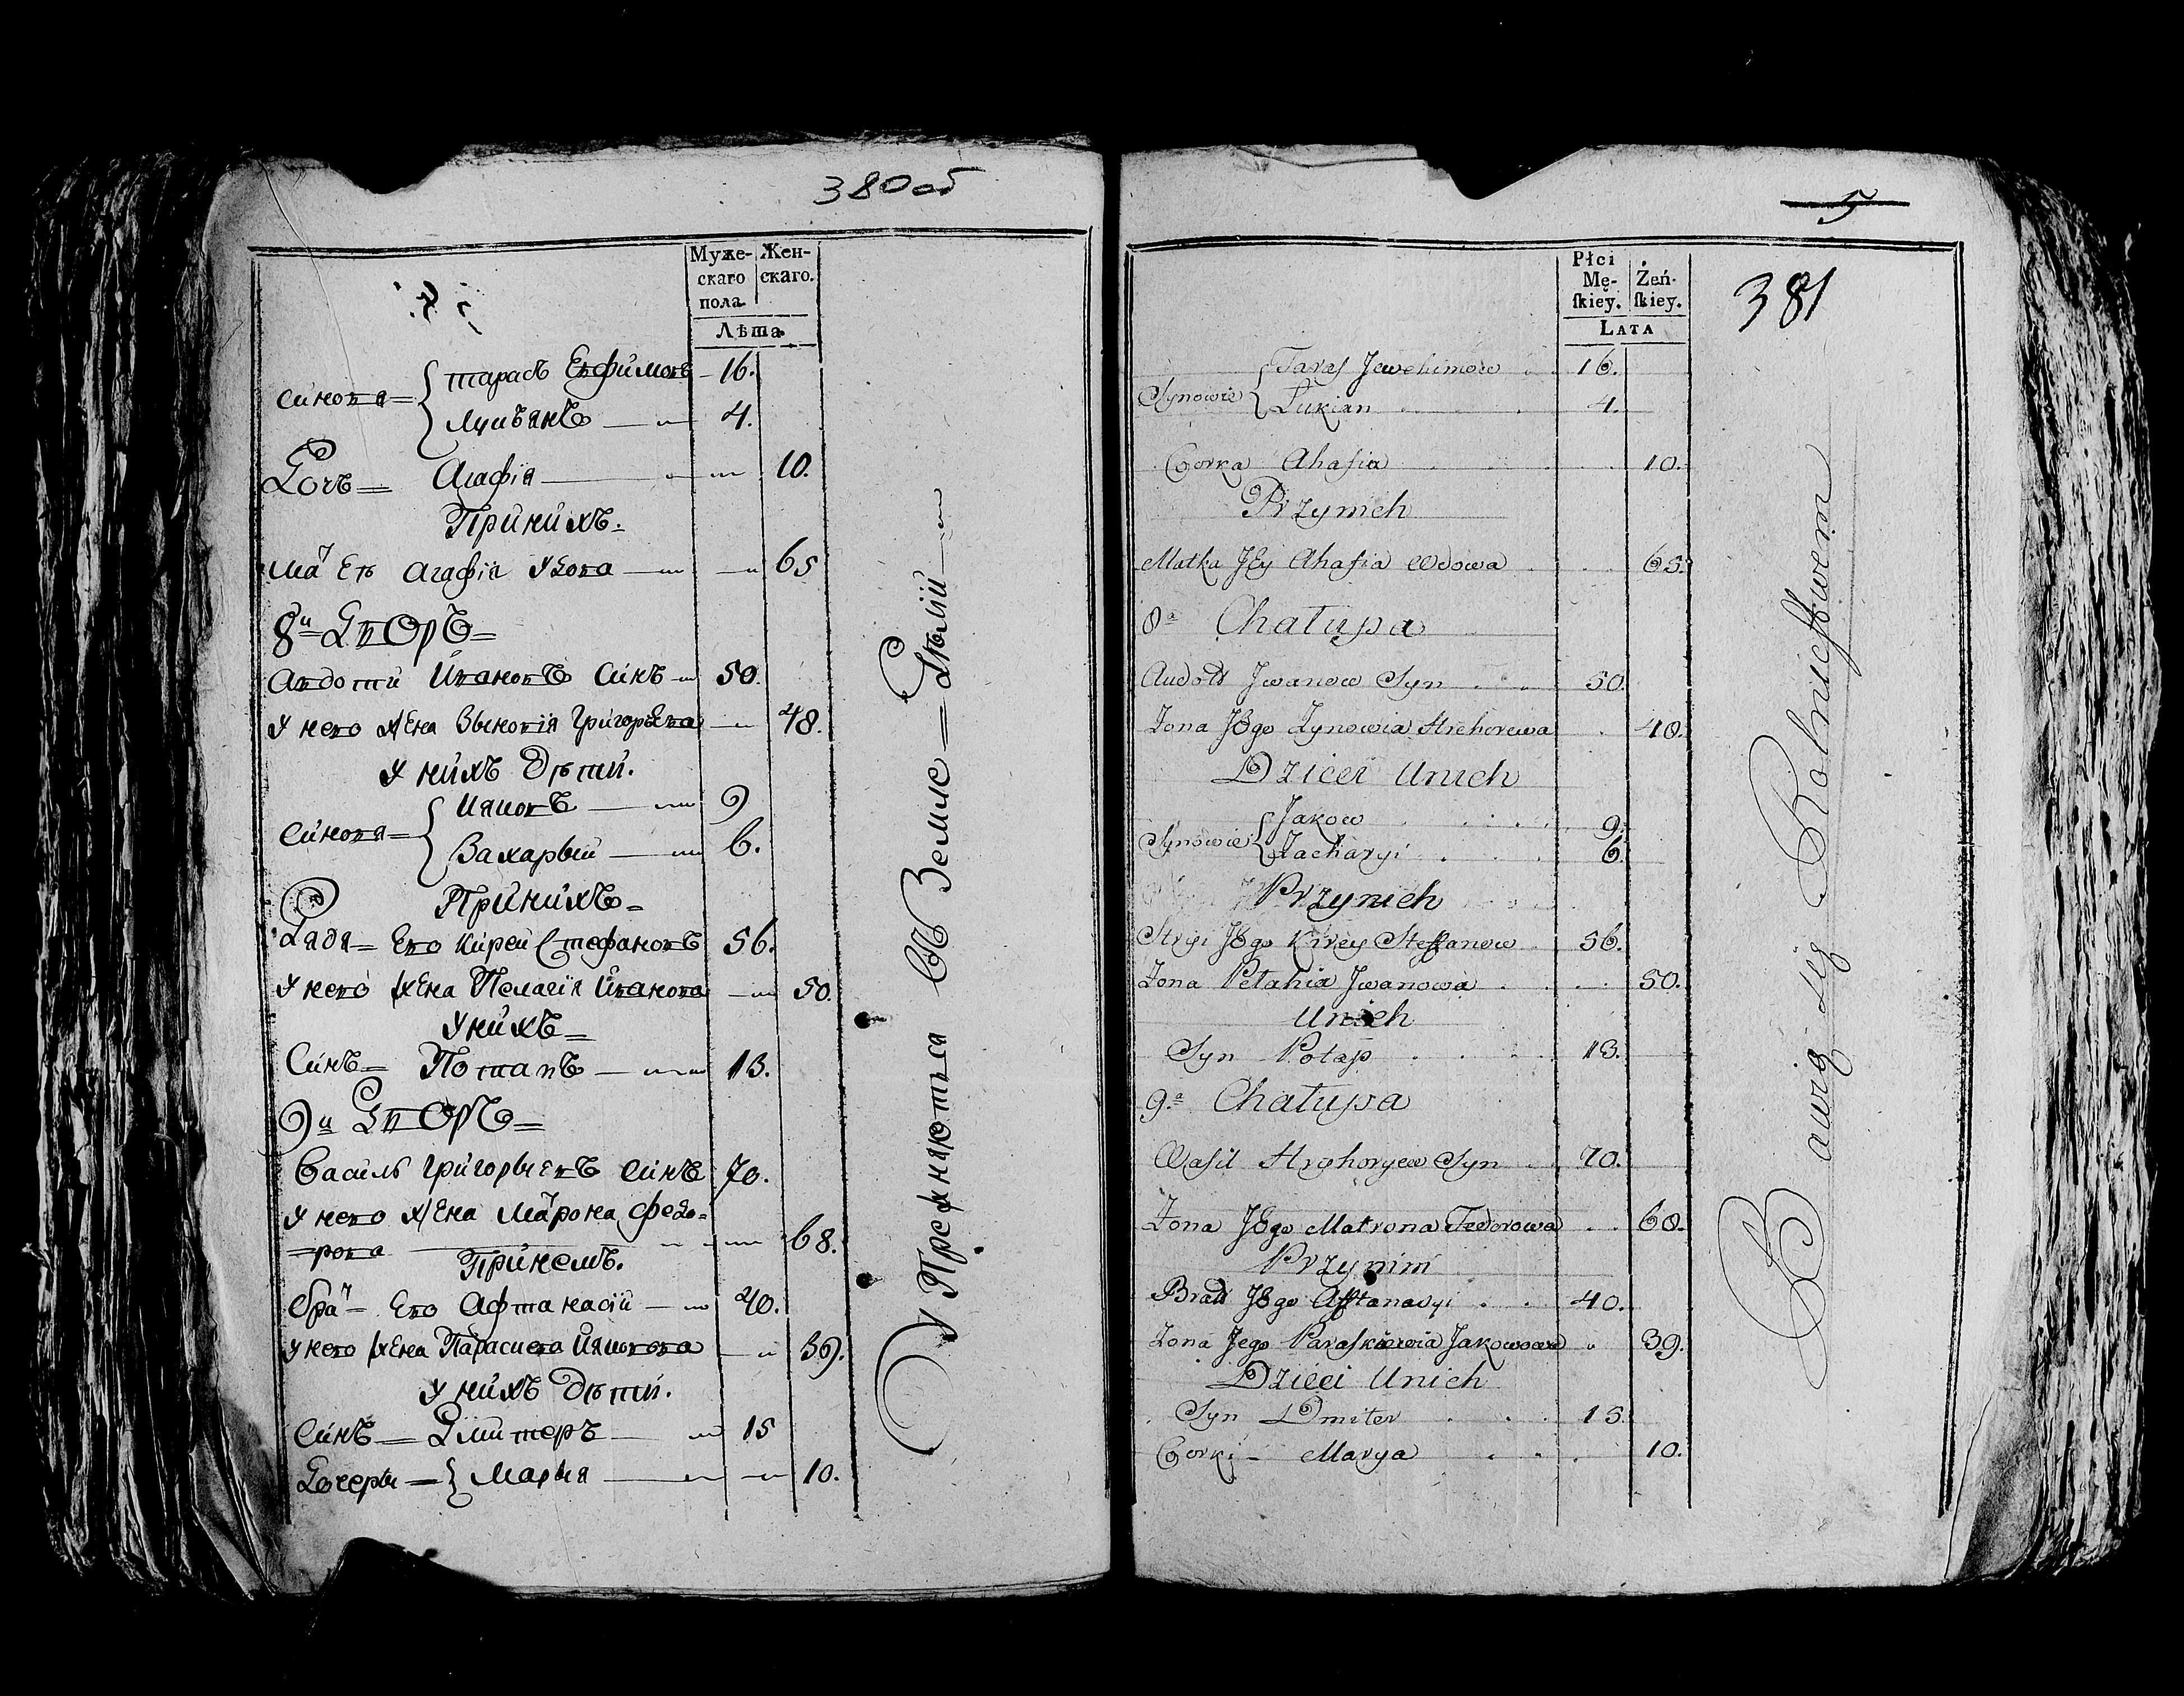 380 об
Муже- Жен-
скаго скаго.
пола
Лѣта
тарасъ Евфимовъ 16.
Синовя =
Лукъянъ 4.
Дочъ = Агафія 10.
Принихъ.
Мат Еѣ Агафія удова 65
8й Дворъ =
Авдотий Ивановъ Синъ 50.
У него жена Зѣновія Григорьева 48.
У нихъ дѣти.
Яковъ 9
Синовя =
Захарый 6.
Принихъ =
Дядя = Его Кирей Стефановъ 56.
У него жена Пелагія Иванова 50.
Унихъ =
Синъ = Потапъ 13.
9й Дворъ =
Василь Григорьіевъ Синъ 70.
У него жена Матрона Федо=
=рова 68.
Принемъ.
брат = Его Афтанасій 40.
У него жена Параскева Яковова 39.
У нихъ дѣти.
Синъ = Дмитеръ 15
Дочеры = Марыя 10.
Упрежняютъся въ Земле = Дѣлій
5
381
Płci
Mę- Żeń-
skiey. skiey.
LATA
Taras Jewchimow 16.
Synowie
Łukian 4.
Corka Ahafia 10.
Przynich
Matka Jey Ahafia Wdowa 65.
8a Chałupa
Audoti Jwanow Syn 50.
Zona Jego Zynowia Hrehorewa 48.
Dzieci Unich
Jakow 9.
Synowie
Zacharyi 6.
Przynich
Stryi Jego Kirey Steffanow 56.
Zona Petahia Jwanowa 50.
Unich
Syn Potap 13.
9.a Chałupa
Wasil Hryhoryew Syn 70.
Zona Jego Matrona Fedorowa 68.
Przynim
Bratt Jego Afftanasyi 40.
Zona Jego Paraskiewia Jakowowa 39.
Dzieci Unich
Syn Dmiter 15.
Corki - Marya 10.
Bawią się Rolnictwem